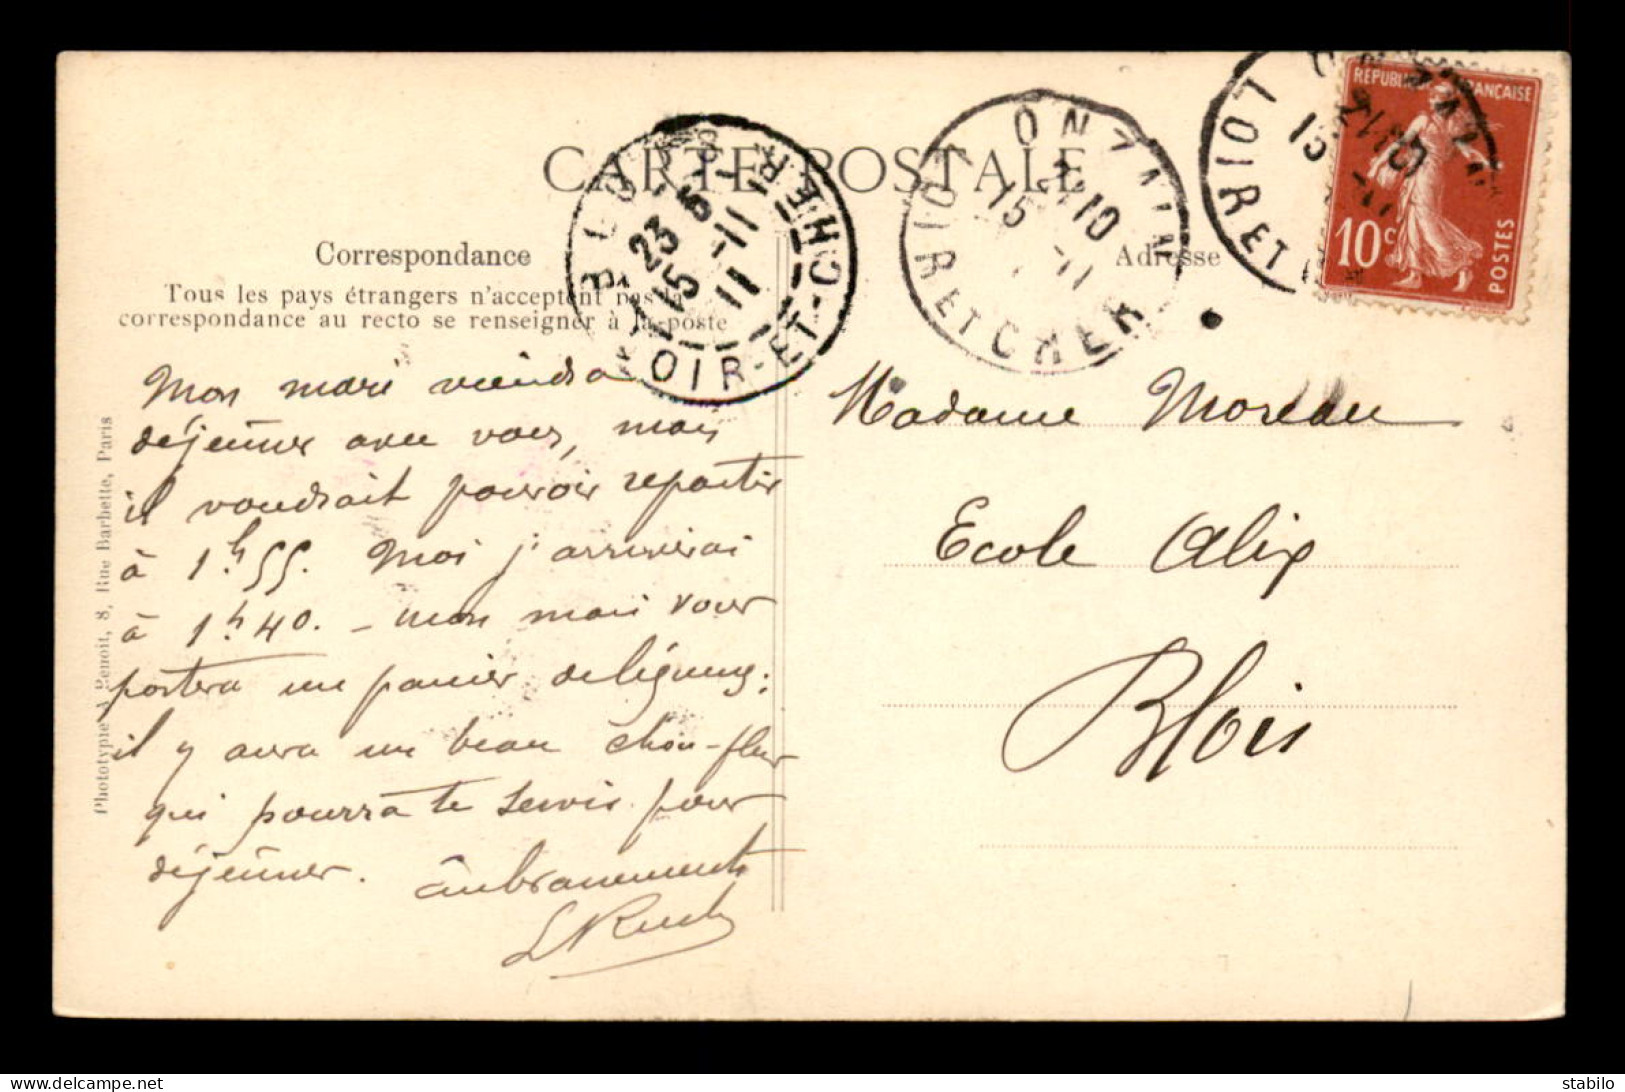 CARTE POSTALE
Correspondance
Tous les pays étrangers n'acceptent pas la
correspondance au recto se renseigner à la poste
Adresse
Mon mari viendra
déjeuner avec vous, mais
il voudrait pouvoir repartir
à 1h55. Moi j'arriverai
à 1h40. — mon mari vous
portera un panier de légumes;
il y aura un beau chou-fleur
qui pourra te servir pour
déjeuner.
L
Madame Moreau
Ecole Alix
Blois
Phototypie A Benoit, 8, Rue Barbette, Paris
BLOIS
23
15 -11
11
LOIR-ET-CHER
ONZAIN
15 -11
LOIR ET CHER
LOIR ET
15
REPUBLIQUE FRANÇAISE
10c
POSTES
stabilo